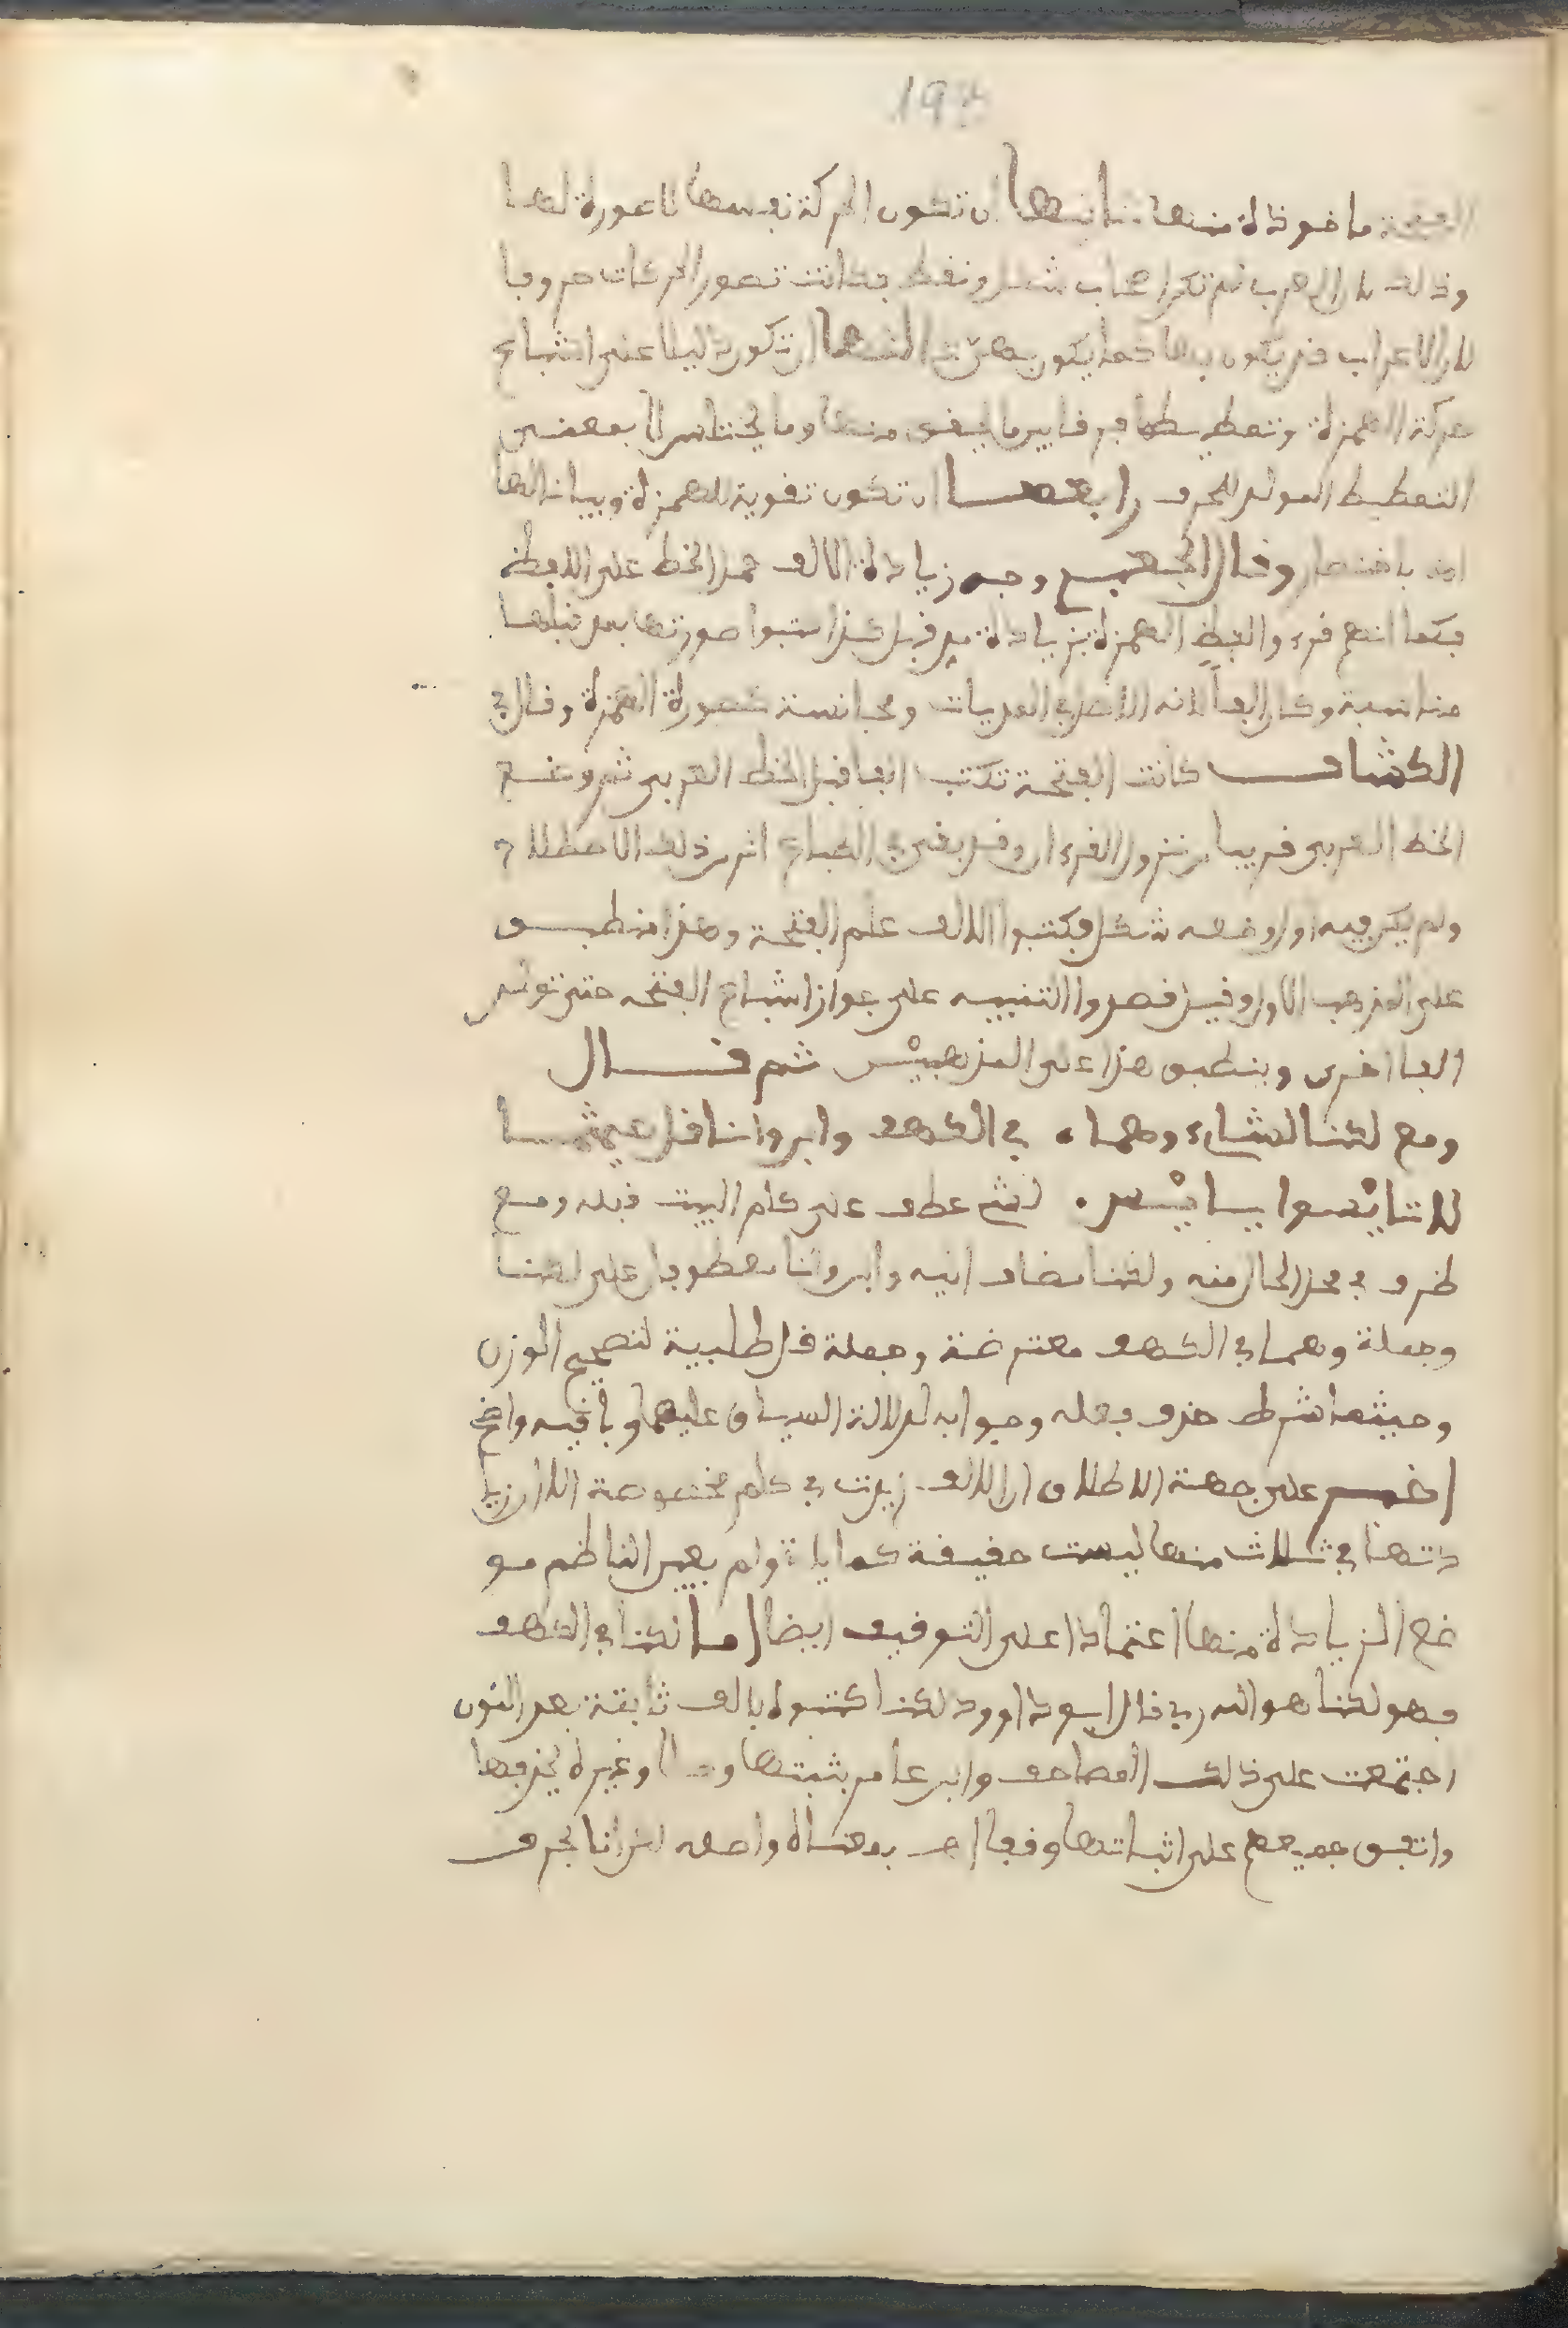 193
الفتحة ماخوذة منها ثانيها ان تكون الحركة نفسها لا صورة لها
وذلك لان العرب لم تكن اصحاب شكل ونقط فكانت تصور الحركات حروفا
لان الاعراب قد يكون بها كما يكون بهن ثالثها ان تكون دليلا على اشباع
حركة الهمزة وتمطيطها فرقا بين ما يخفى منها وما يختلس لا بمعنى
التمطيط المولد للحرف رابعها ان تكون تقوية للهمزة وبيانا لها
اهـ باختصار وقال الجعبري وجه زيادة الالف حمل الخط على اللفظ
فكما انهم قووا لفظ الهمزة بزيادة مد قبل كذا اثبتوا صورتها بعد قبلها
مناسبة وكان الفا لانه الاصل في المديات ومجانسة لصورة الهمزة وقال في
الكشاف كانت الفتحة تكتب الفا قبل الخط العربي ثم وضع
الخط العربي قريبا من نزول القرءان وقد بقي في الطباع اثر من ذلك الاصطلاح
ولم يكن فيه اول وضعه شكل فكتبوا الالف علم الفتحة وهذا منطبق
على المذهب الاول وقيل قصدوا التنبيه على جواز اشباع الفتحة حتى تولد
الفا اخرى وينطبق هذا على المذهبين ثم قال
ومع لكنا لشايء وهما • في الكهف وابن وانا قل حيثما
لا تايْـسوا يايْـس • لـش عطف على كلم البيت قبله ومع
ظرف في محل الحال منه ولكنا مضاف اليه وابن وانا معطوفان على لكنا
وجملة وهما في الكهف معترضة وجملة قل طلبية لتصحيح الوزن
وحيثما شرط حذف فعله وجوابه لدلالة السياق عليهما وباقيه واضح
اخبر على جهة الاطلاق ان الالف زيدت في كلم مخصوصة الا ان زيا
دتها في ثلاث منها ليست حقيقة كما ياتي ولم يعين الناظم مو
ضع الزيادة منها اعتمادا على التوقيف ايضا اما لكنا في الكهف
فهو لكنا هو الله ربي قال ابو داوود لكنا كتبوه بالف ثابتة بعد النون
اجتمعت على ذلك المصاحف وابن عامر يثبتها وصلا وغيره يحذفها
واتفق جميعهم على اثباتها وقفا اهـ بمعناه واصله لكن انا بحرف